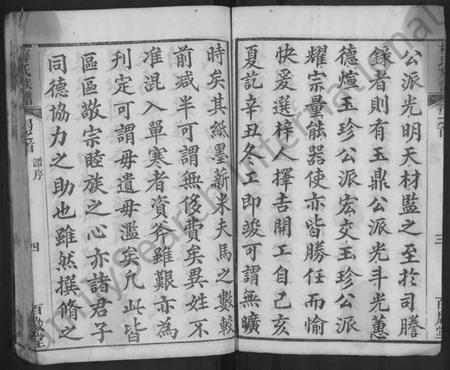 公派光明天材監之至於司謄
錄者則有玉鼎公派光斗光蕙
德煊玉珍公派宏交玉珍公派
耀宗量能器使亦皆勝任而愉
快爰選梓人擇吉開工自己亥
夏訖辛丑冬工即竣可謂無曠
三
時矣其紙墨薪米夫馬之數較
前減半可謂無侈費矣異姓不
准混入單寒者資斧雖艱亦為
刊定可謂毋遺毋濫矣凡此皆
區區敬宗睦族之心亦諸君子
同德協力之助也雖然撰脩之
氏族譜
譜序
四